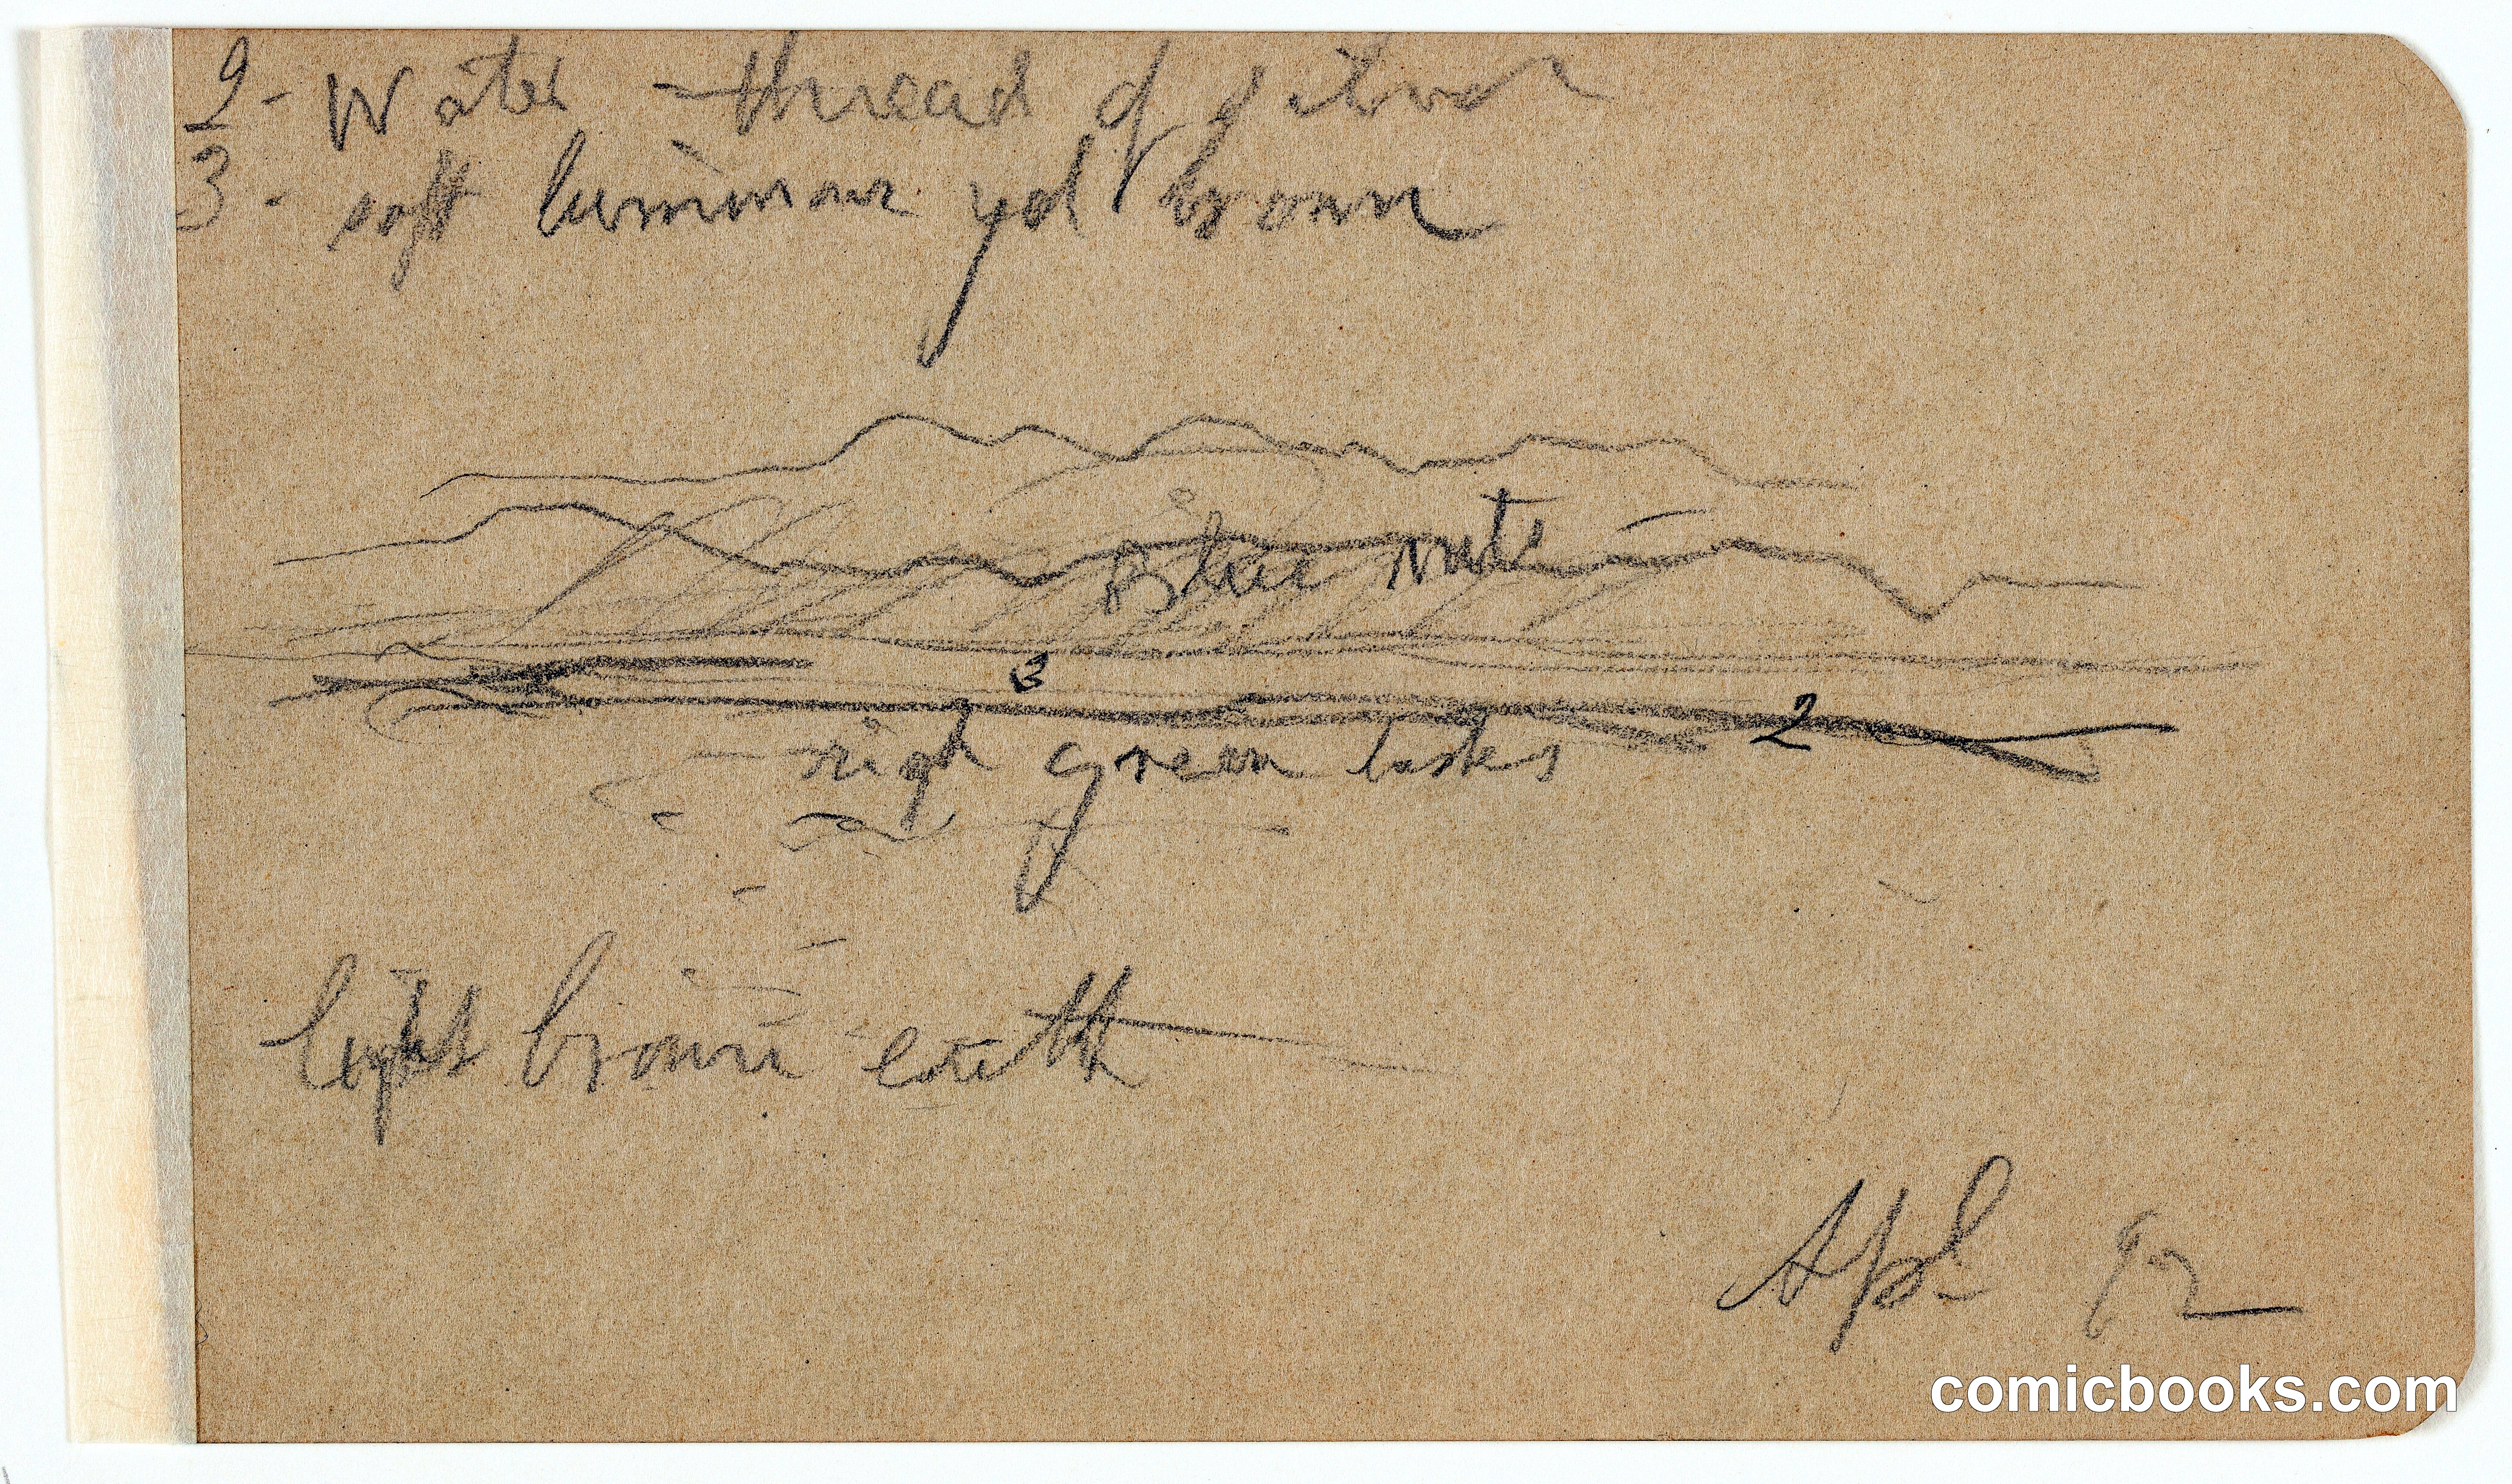 2 - Water - thread of silver
3 - soft luminous yel brown
Blue mts
3
2
green
light brown earth
Apl 92
comicbooks.com